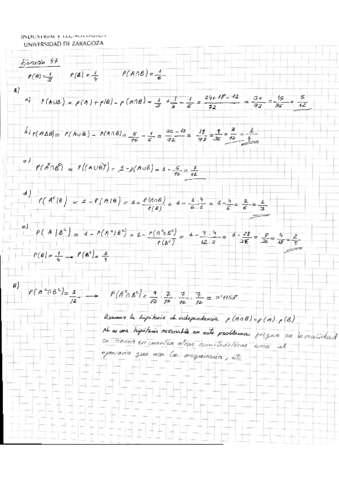 INDUSTRIAL Y TECNOLÓGICA
UNIVERSIDAD DE ZARAGOZA
Ejercicio 47
P(A)=1/3 P(B)=1/4 P(A∩B)=1/6
A)
a) P(A∪B) = P(A)+P(B)-P(A∩B) = 1/3+1/4-1/6 = 24+18-12/72 = 30/72 = 15/36 = 5/12
b) P(AΔB) = P(A∪B) - P(A∩B) = 5/12 - 1/6 = 30-12/72 = 18/72 = 9/36 = 1/4
c) P(A^c∩B^c) = P((A∪B)^c) = 1-P(A∪B) = 1-5/12 = 7/12
d) P(A^c|B) = 1-P(A|B) = 1-P(A∩B)/P(B) = 1-1·4/6·1 = 1-4/6 = 2/6 = 1/3
e) P(A|B^c) = 1-P(A^c|B^c) = 1-P(A^c∩B^c)/P(B^c) = 1-7·4/12·3 = 1-28/36 = 8/36 = 4/18 = 2/9
P(B)=1/4 → P(B^c)=3/4
B)
P(A^c∩B^c)=7/12 → P(A^c∩B^c)=7/12·7/12·7/12·7/12 = 0'1158
Asumimos la hipótesis de independencia P(A∩B)=P(A)·P(B)
No es una hipótesis razonable en este problema porque en la realidad
se tienen en cuenta otras como el
operario que usa la maquinaria, etc